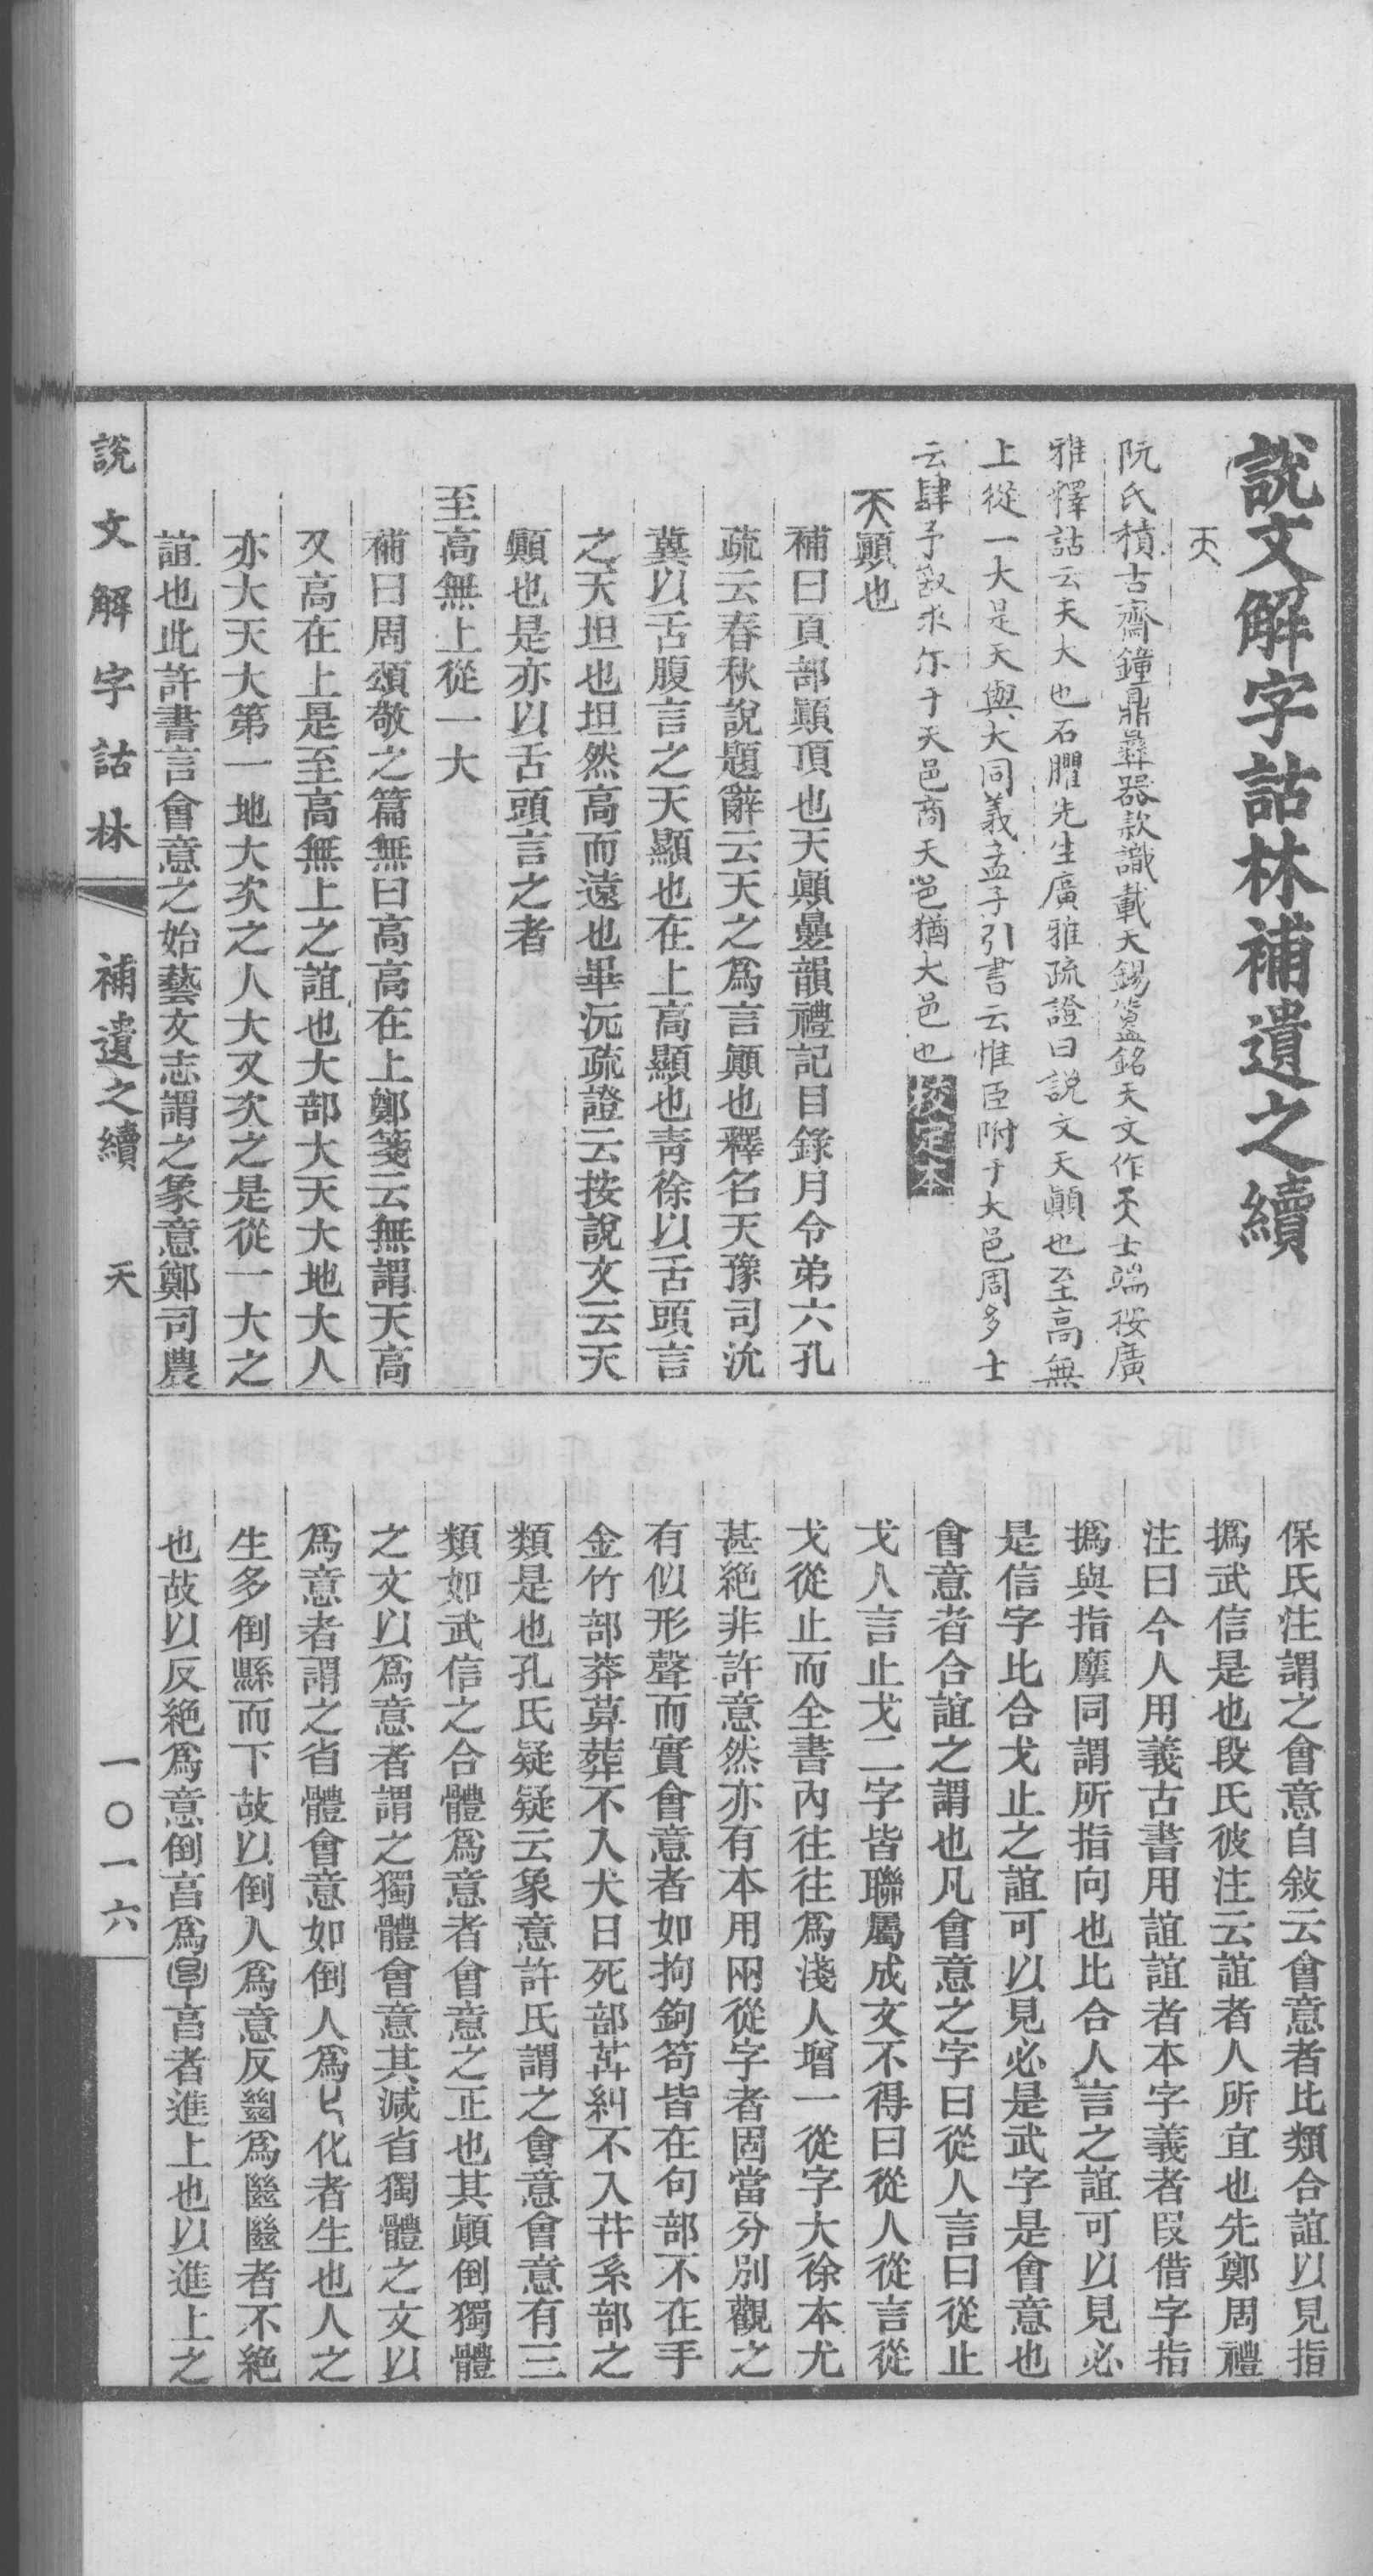 說文解字詁林補遺之續
天
阮氏積古齋鐘鼎彝器款識載大錫簋銘天文作天士端桉廣
雅釋詁云天大也石臞先生廣雅疏證曰說文天顚也至高無
上從一大是天與大同義孟子引書云惟臣附于大邑周多士
云肆予敢求尓于天邑商天邑猶大邑也校定本
天顚也
補曰頁部顚頂也天顚曡韻禮記目錄月令弟六孔
疏云春秋說題辭云天之爲言顚也釋名天豫司沇
冀以舌腹言之天顯也在上高顯也靑徐以舌頭言
之天坦也坦然高而遠也畢沅疏證云按說文云天
顚也是亦以舌頭言之者
至高無上從一大
補曰周頌敬之篇無曰高高在上鄭箋云無謂天高
又高在上是至高無上之誼也大部大天大地大人
亦大天大第一地大次之人大又次之是從一大之
誼也此許書言會意之始藝文志謂之象意鄭司農
保氏注謂之會意自敍云會意者比類合誼以見指
撝武信是也段氏彼注云誼者人所宜也先鄭周禮
注曰今人用義古書用誼誼者本字義者叚借字指
撝與指摩同謂所指向也比合人言之誼可以見必
是信字比合戈止之誼可以見必是武字是會意也
會意者合誼之謂也凡會意之字曰從人言曰從止
戈人言止戈二字皆聯屬成文不得曰從人從言從
戈從止而全書內往往爲淺人增一從字大徐本尤
甚絕非許意然亦有本用兩從字者固當分別觀之
有似形聲而實會意者如拘鉤笱皆在句部不在手
金竹部莽䒤葬不入犬日死部茻糾不入艸系部之
類是也孔氏疑疑云象意許氏謂之會意會意有三
類如武信之合體爲意者會意之正也其顚倒獨體
之文以爲意者謂之獨體會意其減省獨體之文以
爲意者謂之省體會意如倒人爲𠤎化者生也人之
生多倒縣而下故以倒人爲意反𢇍爲㡭㡭者不絕
也故以反絕爲意倒亯爲𣆪亯者進上也以進上之
說文解字詁林
補遺之續
天
一〇一六